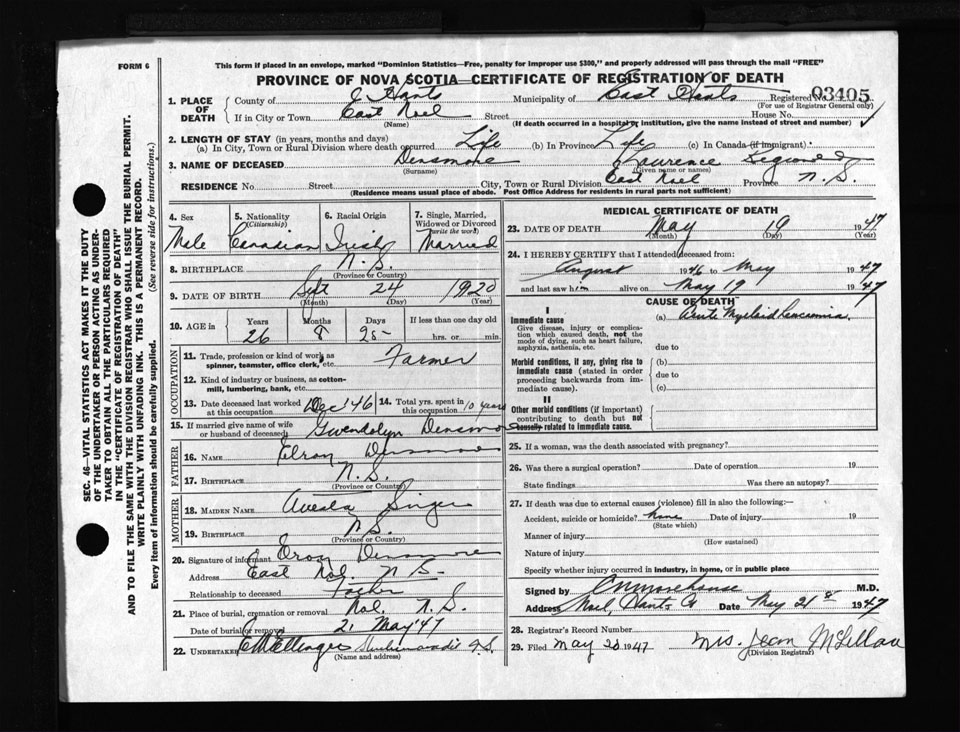 FORM 6
This form if placed in an envelope, marked "Dominion Statistics—Free, penalty for improper use $300," and properly addressed will pass through the mail "FREE"
PROVINCE OF NOVA SCOTIA—CERTIFICATE OF REGISTRATION OF DEATH
1. PLACE OF DEATH
County of E Hants Municipality of East Hants Registered No. 03405
(For use of Registrar General only)
If in City or Town East Noel Street House No.
(Name) (If death occurred in a hospital or institution, give the name instead of street and number)
2. LENGTH OF STAY (in years, months and days)
(a) In City, Town or Rural Division where death occurred Life (b) In Province Life (c) In Canada (if immigrant)
3. NAME OF DECEASED Densmore Laurence
(Surname) (Given name or names)
RESIDENCE No. Street City, Town or Rural Division East Noel Province N.S.
(Residence means usual place of abode. Post Office Address for residents in rural parts not sufficient)
SEC. 46—VITAL STATISTICS ACT MAKES IT THE DUTY
OF THE UNDERTAKER OR PERSON ACTING AS UNDER-
TAKER TO OBTAIN ALL THE PARTICULARS REQUIRED
IN THE "CERTIFICATE OF REGISTRATION OF DEATH"
AND TO FILE THE SAME WITH THE DIVISION REGISTRAR WHO SHALL ISSUE THE BURIAL PERMIT.
WRITE PLAINLY WITH UNFADING INK. THIS IS A PERMANENT RECORD.
Every item of information should be carefully supplied. (See reverse side for instructions.)
4. Sex 5. Nationality (Citizenship) 6. Racial Origin 7. Single, Married, Widowed or Divorced (write the word)
Male Canadian Irish Married
8. BIRTHPLACE N.S.
(Province or Country)
9. DATE OF BIRTH Sept 24 1920
(Month) (Day) (Year)
10. AGE in Years Months Days If less than one day old
26 8 25 hrs. or min.
OCCUPATION
11. Trade, profession or kind of work as spinner, teamster, office clerk, etc. Farmer
12. Kind of industry or business, as cotton-mill, lumbering, bank, etc.
13. Date deceased last worked at this occupation Dec '46 14. Total yrs. spent in this occupation 10 years
15. If married give name of wife or husband of deceased Gwendolyn Densmore
FATHER
16. NAME Elron Densmore
17. BIRTHPLACE N.S.
(Province or Country)
MOTHER
18. MAIDEN NAME Singer
19. BIRTHPLACE N.S.
(Province or Country)
20. Signature of informant Densmore
Address East Noel. N.S.
Relationship to deceased Father
21. Place of burial, cremation or removal Noel. N.S.
Date of burial or removal 21 May '47
22. UNDERTAKER
(Name and address)
MEDICAL CERTIFICATE OF DEATH
23. DATE OF DEATH May 19 1947
(Month) (Day) (Year)
24. I HEREBY CERTIFY that I attended deceased from:
August 1946 to May 1947
and last saw him alive on May 19 1947
CAUSE OF DEATH
I
Immediate cause (a) Acute Myeloid Leucaemia,
Give disease, injury or complication which caused death, not the mode of dying, such as heart failure, asphyxia, asthenia, etc. due to
Morbid conditions, if any, giving rise to immediate cause (stated in order proceeding backwards from immediate cause). (b)
due to
(c)
II
Other morbid conditions (if important) contributing to death but not causally related to immediate cause.
25. If a woman, was the death associated with pregnancy?
26. Was there a surgical operation? Date of operation 19
State findings Was there an autopsy?
27. If death was due to external causes (violence) fill in also the following:—
Accident, suicide or homicide? None Date of injury 19
(State which)
Manner of injury
(How sustained)
Nature of injury
Specify whether injury occurred in industry, in home, or in public place
Signed by M.D.
Address Noel, Hants Date May 21st 1947
28. Registrar's Record Number
29. Filed May 20 1947 Mrs. Jean McLellan
(Division Registrar)